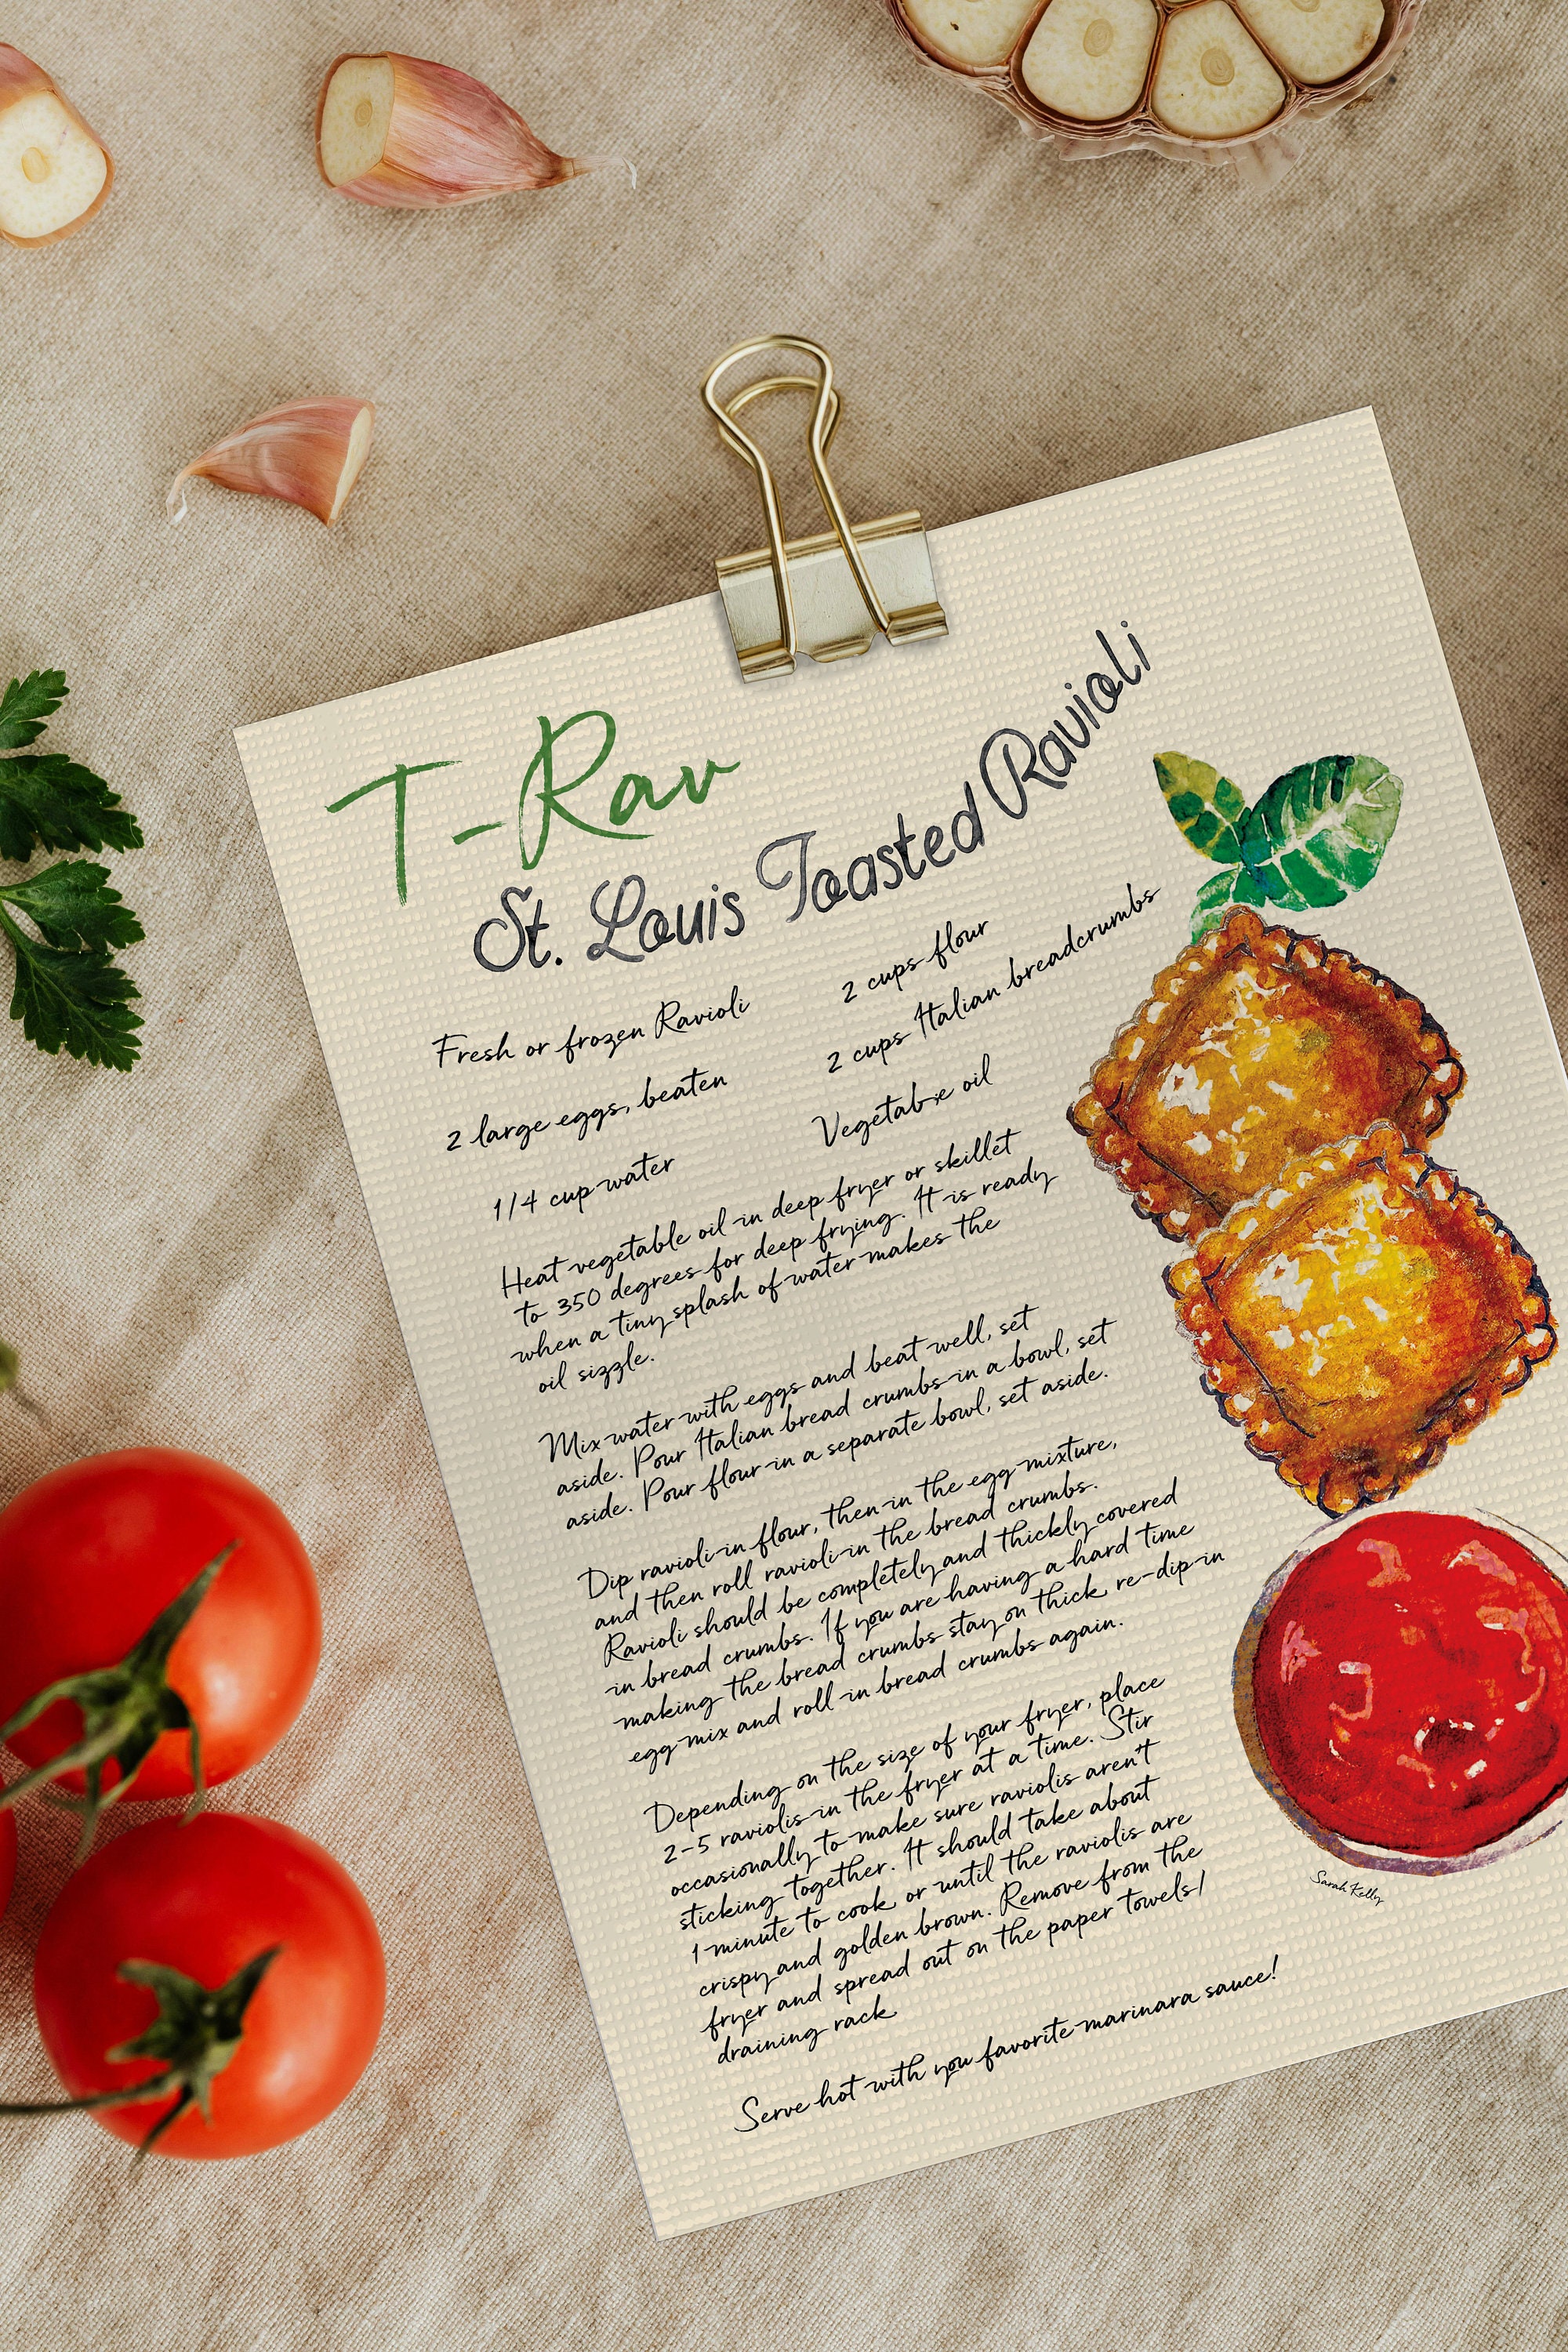 T-Rav
St. Louis Toasted Ravioli
Fresh or frozen Ravioli
2 large eggs, beaten
1/4 cup water
2 cups flour
2 cups Italian breadcrumbs
Vegetable oil
Heat vegetable oil in deep fryer or skillet
to 350 degrees for deep frying. It is ready
when a tiny splash of water makes the
oil sizzle.
Mix water with eggs and beat well, set
aside. Pour Italian bread crumbs in a bowl, set
aside. Pour flour in a separate bowl, set aside.
Dip ravioli in flour, then in the egg mixture,
and then roll ravioli in the bread crumbs.
Ravioli should be completely and thickly covered
in bread crumbs. If you are having a hard time
making the bread crumbs stay on thick, re-dip in
egg mix and roll in bread crumbs again.
Depending on the size of your fryer, place
2-5 raviolis in the fryer at a time. Stir
occasionally to make sure raviolis aren't
sticking together. It should take about
1 minute to cook, or until the raviolis are
crispy and golden brown. Remove from the
fryer and spread out on the paper towels/
draining rack.
Serve hot with you favorite marinara sauce!
Sarah Kelly